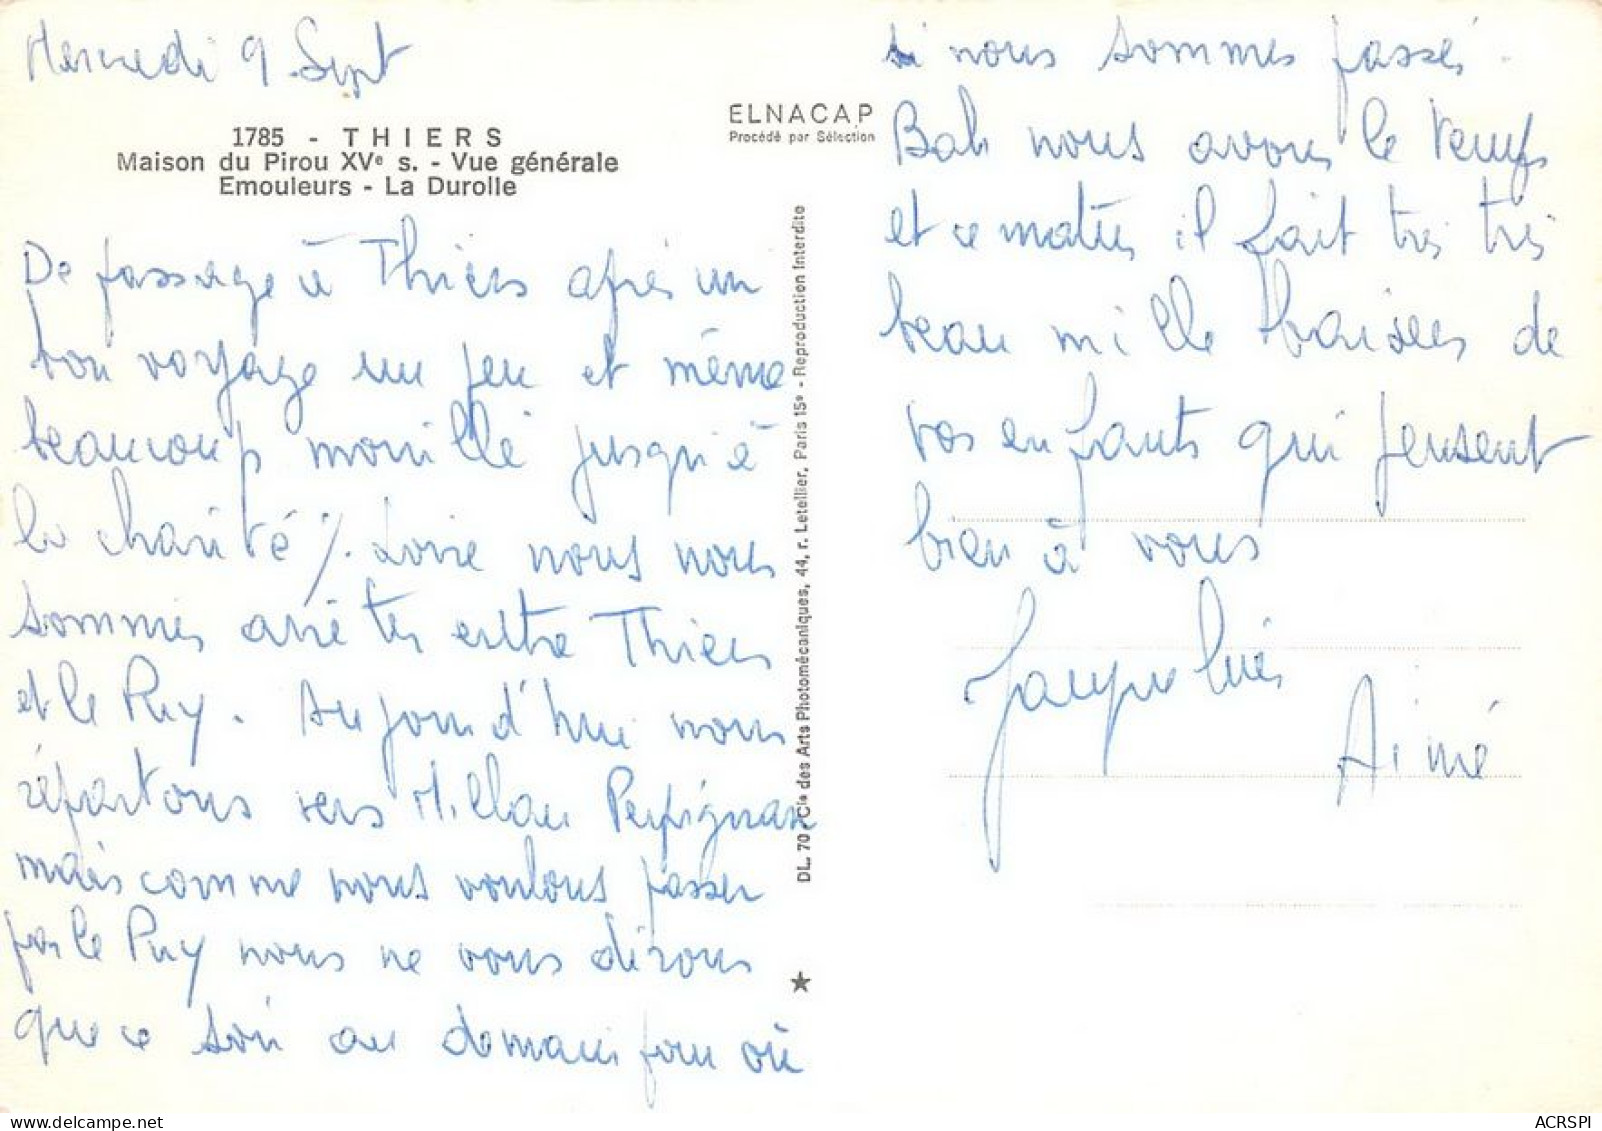 Mercredi 9 Sept
1785 - THIERS
Maison du Pirou XVe s. - Vue générale
Emouleurs - La Durolle
De passage à Thiers après un
bon voyage un peu et même
beaucoup mouillé jusqu'à
la charité s/. Loire nous nous
sommes arrêtés entre Thiers
et le Puy. Aujourd'hui nous
répartons vers Millau Perpignan
mais comme nous voulons passer
par le Puy nous ne vous dirons
que ce soir ou demain par où
ELNACAP
Procédé par Sélection
DL. 70 - Cie des Arts Photomécaniques, 44, r. Letellier, Paris 15e - Reproduction interdite
si nous sommes passés.
Bah nous avons le temps
et ce matin il fait très très
beau mille baisers de
vos enfants qui pensent
bien à vous
Jacqueline
Aimé
ACRSPI